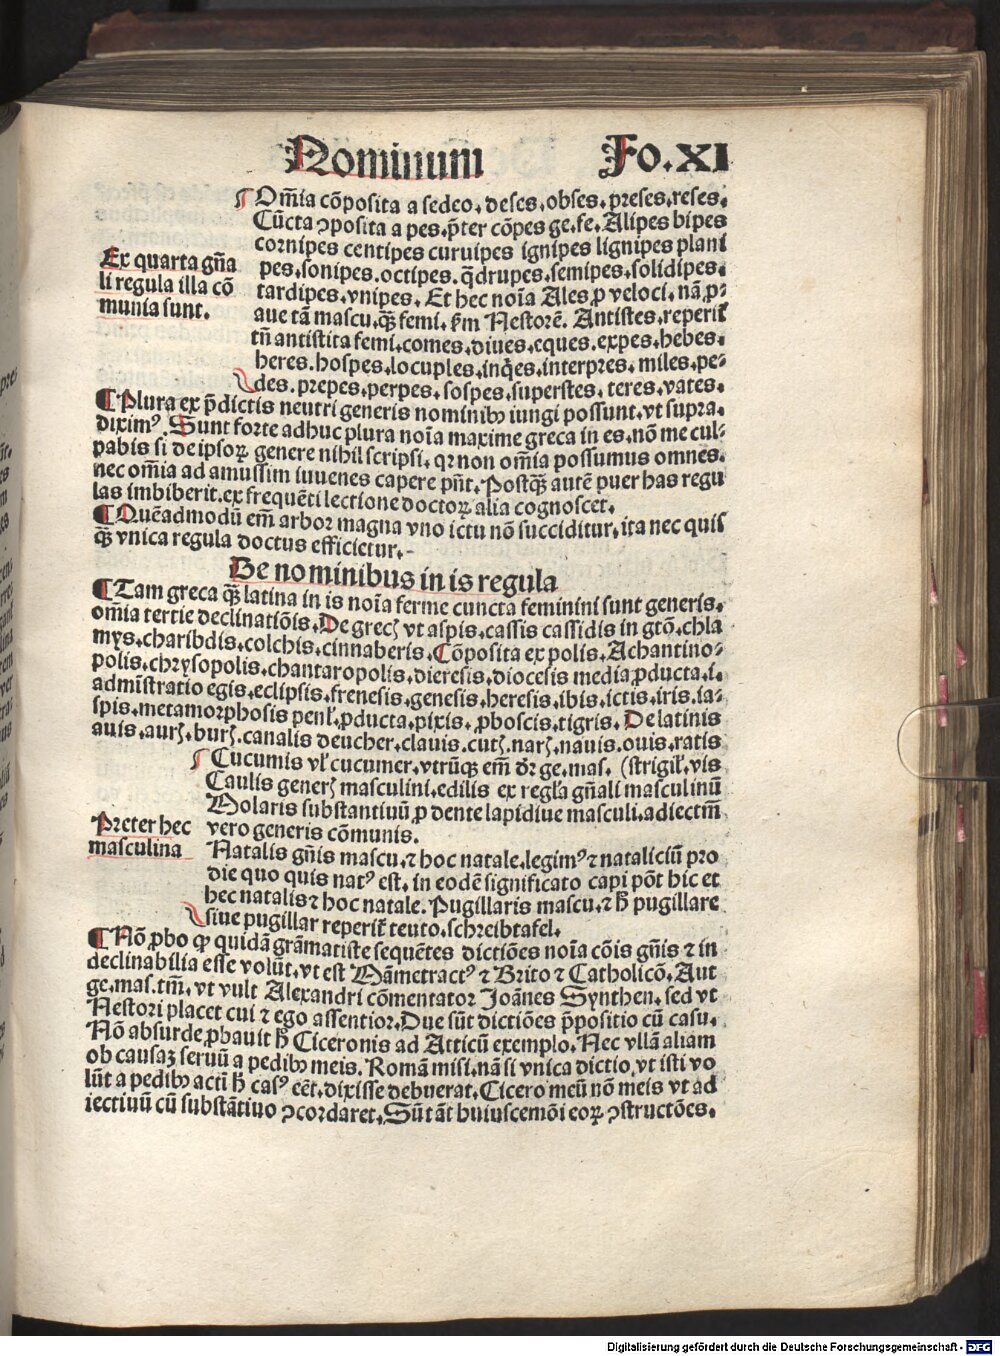 Nominum Fo.XI
Om̄ia cōposita a sedeo. deses. obses. preses. reses.
Cūcta ꝯposita a pes. p̄ter cōpes ge. fe. Alipes bipes
cornipes centipes curuipes ignipes lignipes plani
pes. sonipes. octipes. q̄drupes. semipes. solidipes.
tardipes. vnipes. Et hec noīa Ales ꝓ veloci. nā ꝓ-
aue tā mascu. qꝫ̄ femi. ẜm Nestorē. Antistes. reperit̄
tn̄ antistita femi. comes. diues. eques. expes. hebes.
heres. hospes. locuples. inq̄es. interpres. miles. pe-
des. prepes. perpes. sospes. superstes. teres. vates.
Ex quarta gn̄a
li regula illa cō
munia sunt.
¶ Plura ex p̄dictis neutri generis nominibꝫ iungi possunt. vt supra.
diximꝰ. Sunt forte adhuc plura noīa maxime greca in es. nō me cul-
pabis si de ipsoꝝ genere nihil scripsi. qꝛ non om̄ia possumus omnes.
nec om̄ia ad amussim iuuenes capere pn̄t. Postqꝫ̄ autē puer has regu
las imbiberit. ex frequēti lectione doctoꝝ alia cognoscet.
¶ Quēadmodū em̄ arbor magna vno ictu nō succiditur. ita nec quis
qꝫ̄ vnica regula doctus efficietur.-
De nominibus in is regula
¶ Tam greca qꝫ̄ latina in is noīa ferme cuncta feminini sunt generis.
om̄ia tertie declinatiōis. De grecꝭ vt aspis. cassis cassidis in gtō. chla
mys. charibdis. colchis. cinnaberis. Cōposita ex polis. Achantino-
polis. chrysopolis. chantaropolis. dieresis. diocesis media ꝓducta. i.
administratio egis. eclipsis. frenesis. genesis. heresis. ibis. ictis. iris. ia-
spis. metamorphosis penl̄. ꝓducta. pixis. ꝓboscis. tigris. De latinis
auis. aurꝭ. burꝭ. canalis deucher. clauis. cutꝭ. narꝭ. nauis. ouis. ratis
Cucumis vl̄ cucumer. vtrūqꝫ em̄ dr̄ ge. mas. (strigil̄. vis
Caulis generꝭ masculini. edilis ex regl̄a gn̄ali masculinū
Molaris substantiuū ꝓ dente lapidiue masculi. adiectm̄
vero generis cōmunis.
Preter hec
masculina
Natalis gn̄is mascu. ⁊ hoc natale. legimꝰ ⁊ nataliciū pro
die quo quis natꝰ est. in eodē significato capi pōt hic et
hec natalis ⁊ hoc natale. Pugillaris mascu. ⁊ h̄ pugillare
siue pugillar reperit̄ teuto. schreibtafel.
¶ Nō ꝓbo qꝙ quidā grāmatiste sequētes dictiōes noīa cōis gn̄is ⁊ in
declinabilia esse volūt. vt est Māmetractꝰ ⁊ Brito ⁊ Catholicō. Aut
ge. mas. tm̄. vt vult Alexandri cōmentator Joānes Synthen. sed vt
Nestori placet cui ⁊ ego assentior. Due sūt dictiōes p̄positio cū casu.
Nō absurde ꝓbauit h̄ Ciceronis ad Atticū exemplo. Nec vllā aliam
ob causaꝫ seruū a pedibꝫ meis. Romā misi. nā si vnica dictio. vt isti vo
lūt a pedibꝫ acti h̄ casꝰ eēt. dixisse debuerat. Cicero meū nō meis vt ad
iectiuū cū substātiuo ꝯcordaret. Sūt āt huiuscemōi eoꝝ ꝯstructōes.
Digitalisierung gefördert durch die Deutsche Forschungsgemeinschaft - DFG